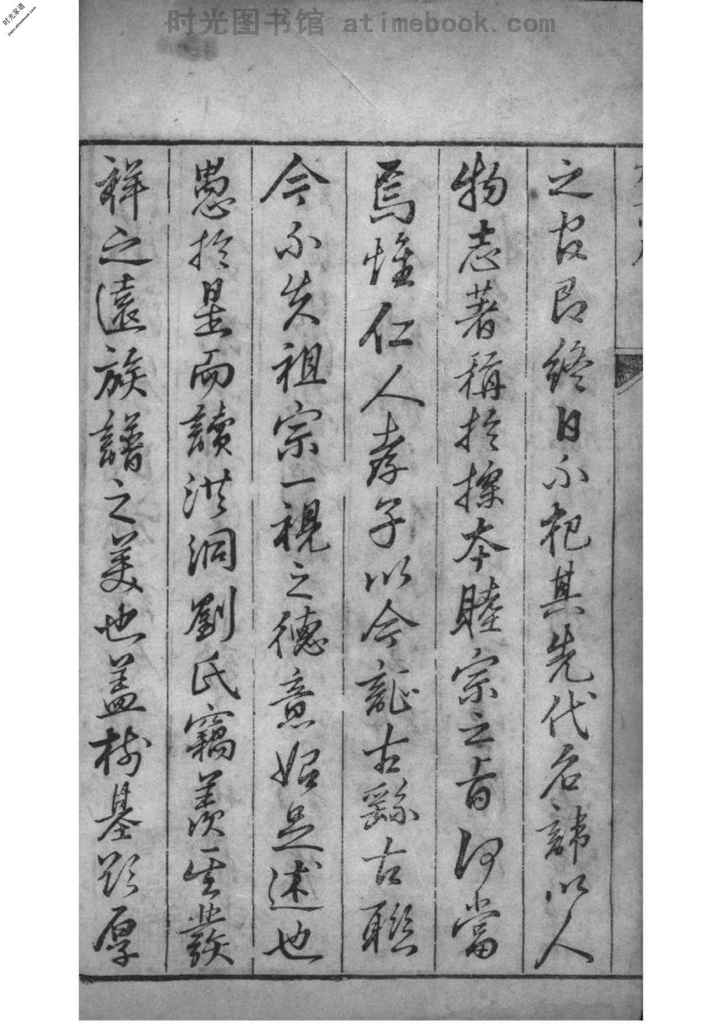 时光图书馆 atimebook.com
时光家谱
之官即終日不杞其先代名諱以人
物志著稱於探本睦宗之旨何當
焉惟仁人孝子以今証古繇古聯
今不失祖宗一視之德意始足述也
愚於是而讀洪洞劉氏竊羨其發
祥之遠族譜之美也蓋樹基於厚